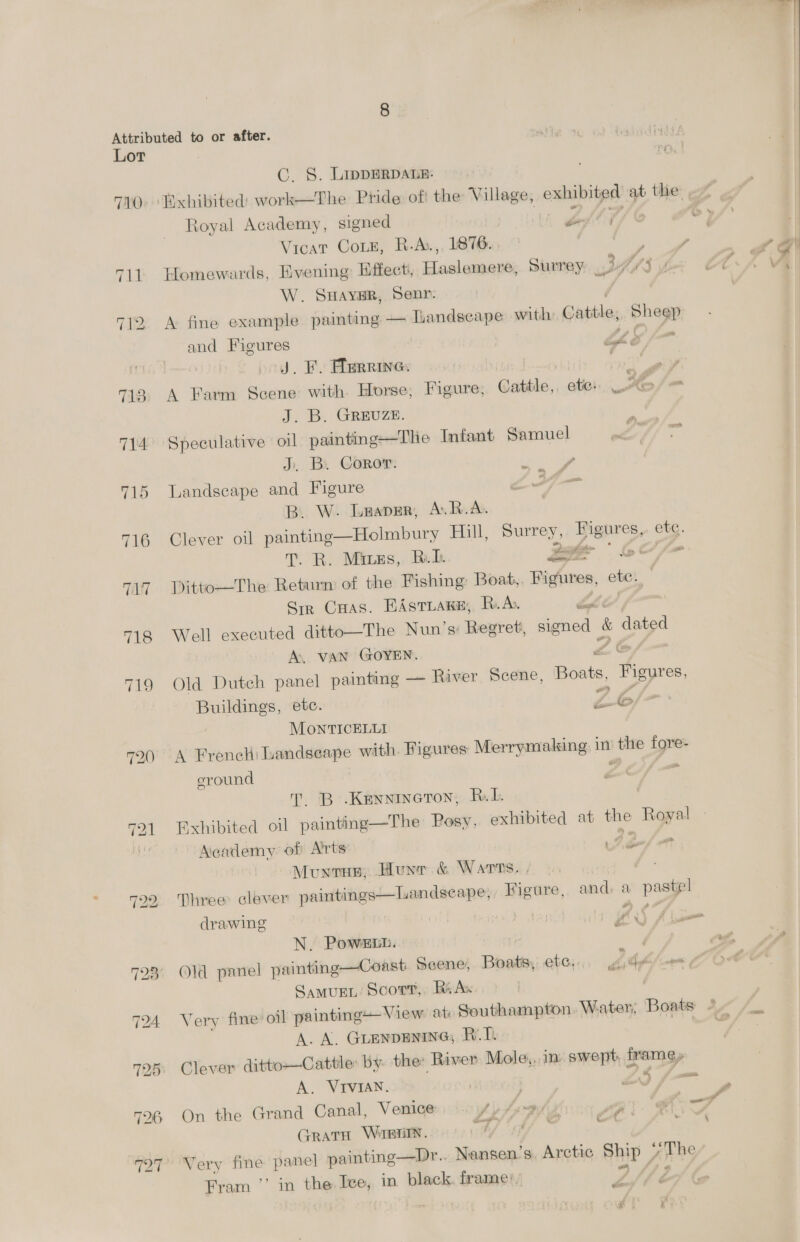 8
Attributed to or after.
Lot
C. S. Lidderdale.
710 Exhibited work—The Pride of the Village, exhibited at the
Royal Academy, signed
Vicat Cole, R.A., 1876.
711 Homewards, Evening Effect, Haslemere, Surrey
W. Shayer, Senr.
712 A fine example painting — Landscape with Cattle, Sheep
and Figures
J. F. Herring.
713 A Farm Scene with Horse, Figure, Cattle, etc.
J. B. Greuze.
714 Speculative oil painting—The Infant Samuel
J. B. Corot.
715 Landscape and Figure
B. W. Leader, A.R.A.
716 Clever oil painting—Holmbury Hill, Surrey, Figures, etc.
T. R. Miles, R.I.
717 Ditto—The Return of the Fishing Boat, Figures, etc.
Sir Chas. Eastlake, R.A.
718 Well executed ditto—The Nun's Regret, signed & dated
A. van Goyen.
719 Old Dutch panel painting — River Scene, Boats, Figures,
Buildings, etc.
Monticelli
720 A French Landscape with Figures Merrymaking in the fore-
ground
T. B. Kennington, R.I.
721 Exhibited oil painting—The Posy, exhibited at the Royal
Academy of Arts
Munthe, Hunt & Watts.
722 Three clever paintings—Landscape, Figure, and a pastel
drawing
N. Powell.
723 Old panel painting—Coast Scene, Boats, etc.
Samuel Scott, R.A.
724 Very fine oil painting—View at Southampton Water, Boats
A. A. Glendening, R.I.
725 Clever ditto—Cattle by the River Mole, in swept frame
A. Vivian.
726 On the Grand Canal, Venice
Grath Willis.
727 Very fine panel painting—Dr. Nansen's Arctic Ship "The
Fram" in the Ice, in black frame